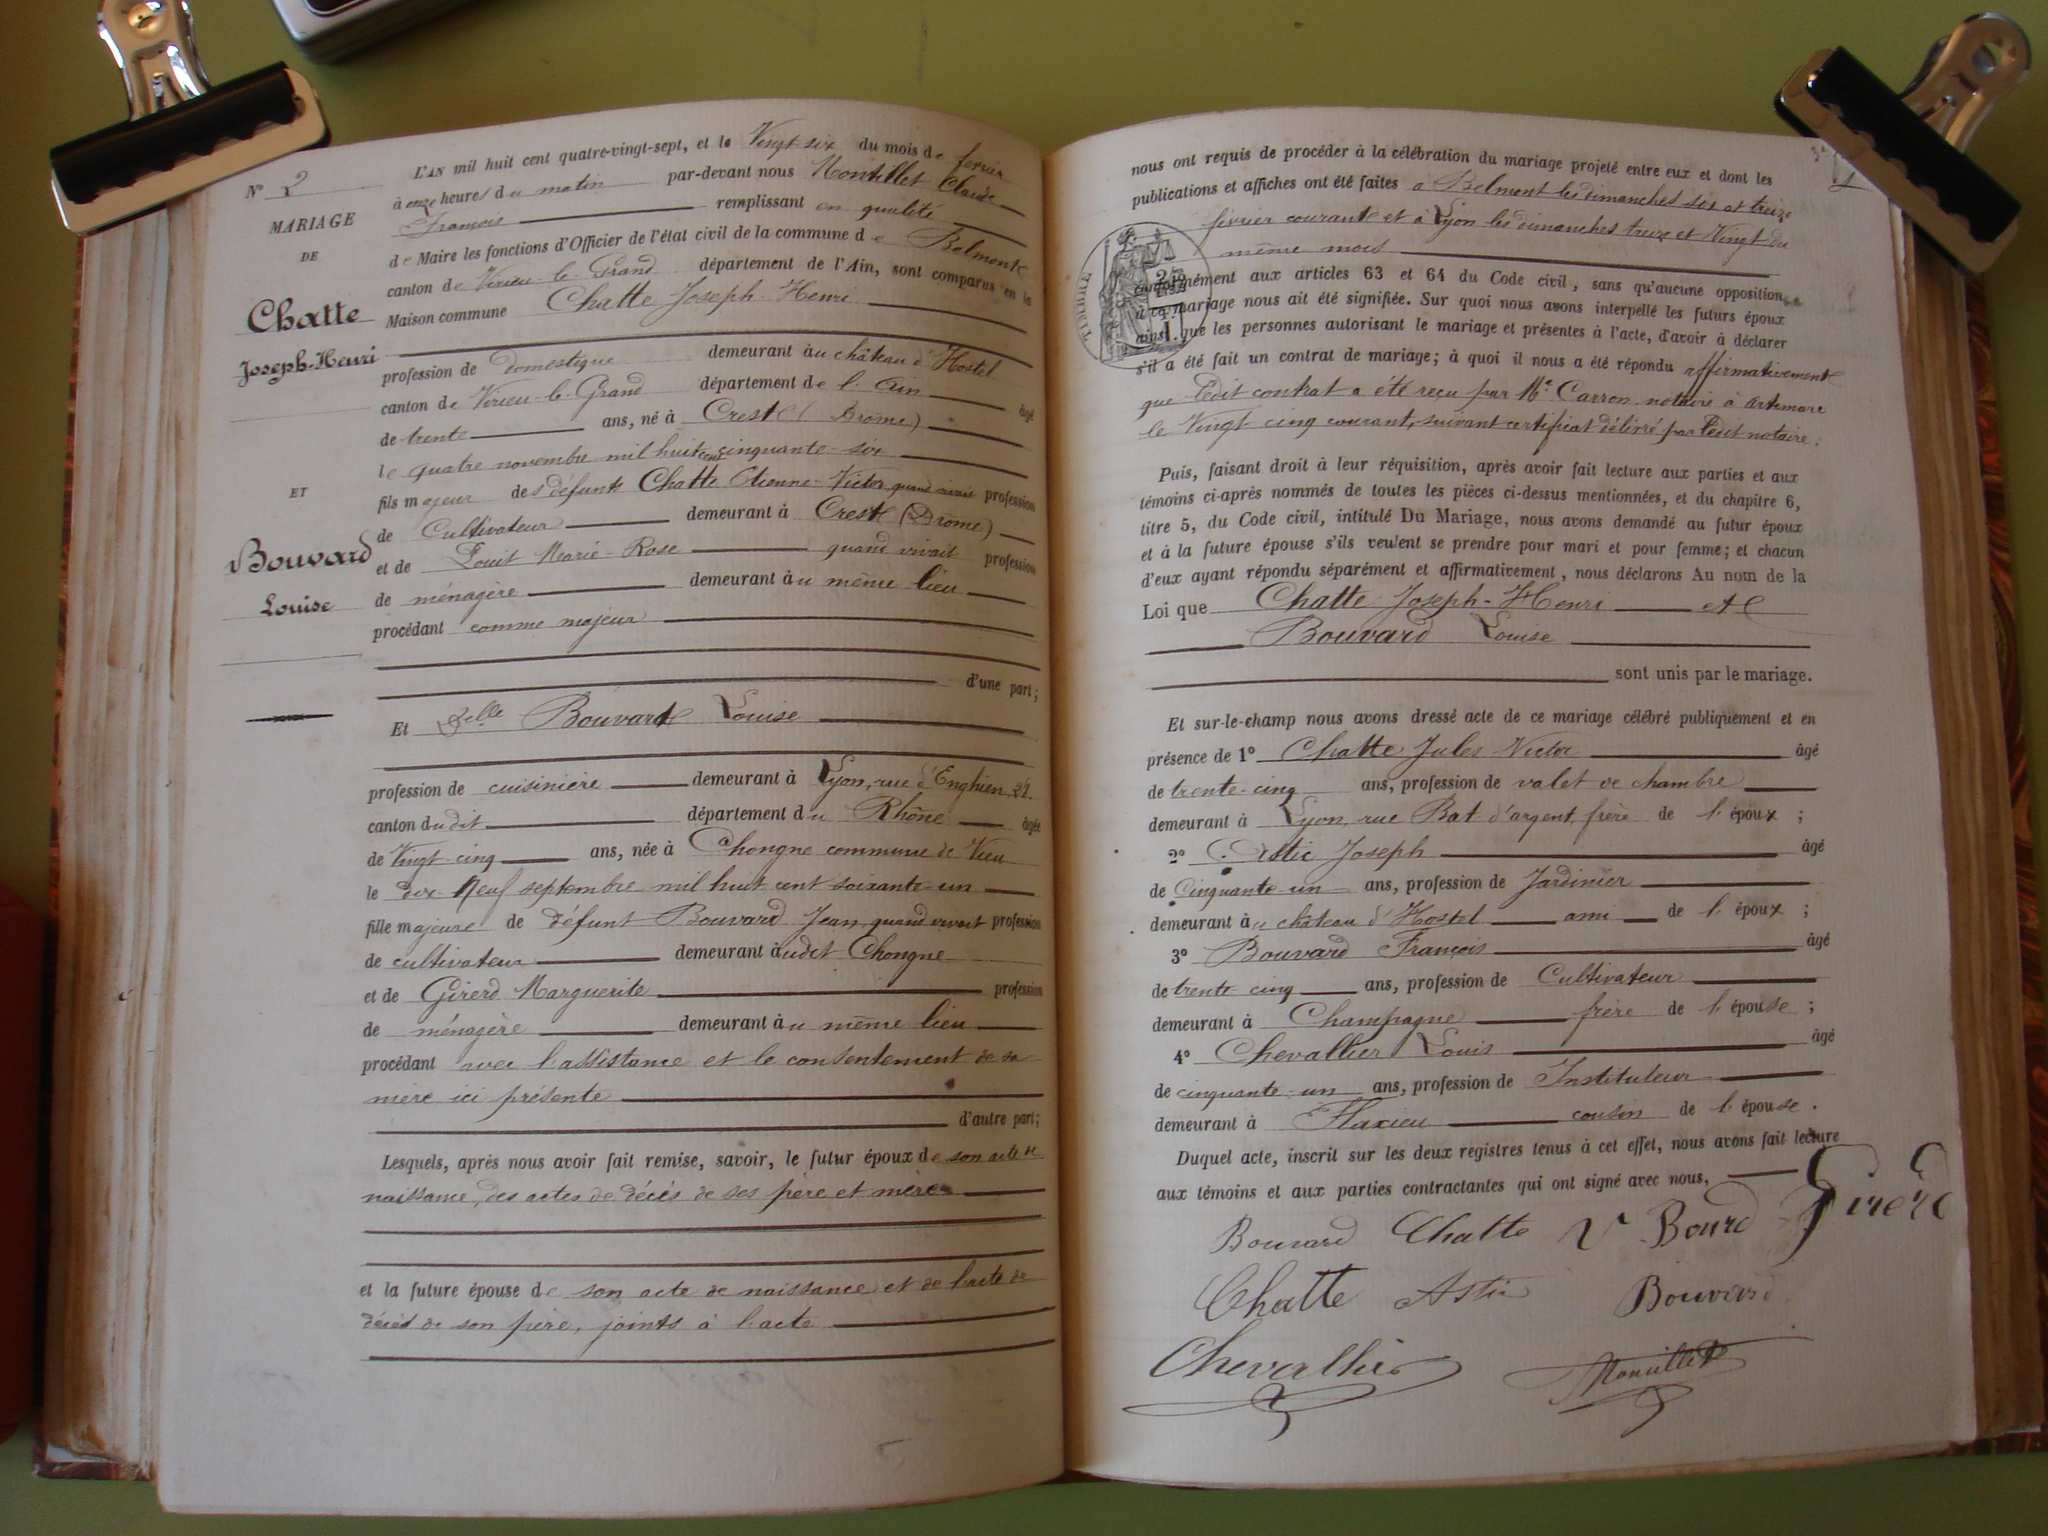 N° 2
MARIAGE
DE
Chatte
Joseph-Henri
ET
Bouvard
Louise
L'AN mil huit cent quatre-vingt-sept, et le Vingt-six du mois de fevrier
à onze heures du matin par-devant nous Montillet Claude
François remplissant en qualité
de Maire les fonctions d'Officier de l'état civil de la commune de Belmont
canton de Virieu-le-Grand département de l'Ain, sont comparus en la
Maison commune Chatte Joseph-Henri
profession de domestique demeurant au château d'Hostel
canton de Virieu-le-Grand département de l'Ain âgé
de trente ans, né à Crest (Drôme)
le quatre novembre mil huit cent cinquante-six
fils majeur des défunts Chatte Etienne-Victor quand vivait profession
de Cultivateur demeurant à Crest (Drôme)
et de Marie-Rose quand vivait profession
de ménagère demeurant au même lieu
procédant comme majeur
d'une part;
Et Delle Bouvard Louise
profession de cuisinière demeurant à Lyon, rue d'Enghien,
canton dudit département du Rhône âgée
de Vingt-cinq ans, née à Chongne commune de Vieu
le dix-Neuf septembre mil huit cent soixante-un
fille majeure de défunt Bouvard Jean quand vivait profession
de cultivateur demeurant audit Chongne
et de Girerd Marguerite profession
de ménagère demeurant au même lieu
procédant avec l'assistance et le consentement de sa
mère ici présente
d'autre part;
Lesquels, après nous avoir fait remise, savoir, le futur époux de son acte de
naissance, des actes de décès de ses père et mère
et la future épouse de son acte de naissance et de l'acte de
décès de son père, joints à l'acte
nous ont requis de procéder à la célébration du mariage projeté entre eux et dont les
publications et affiches ont été faites à Belmont les dimanches six et treize
février courant et à Lyon les dimanches treize et Vingt du
même mois
TIMBRE
conformément aux articles 63 et 64 du Code civil, sans qu'aucune opposition
à ce mariage nous ait été signifiée. Sur quoi nous avons interpellé les futurs époux
ainsi que les personnes autorisant le mariage et présentes à l'acte, d'avoir à déclarer
s'il a été fait un contrat de mariage; à quoi il nous a été répondu affirmativement
que ledit contrat a été reçu par Me Carron notaire à Artemare
le Vingt cinq courant, suivant certificat délivré par ledit notaire.
Puis, faisant droit à leur réquisition, après avoir fait lecture aux parties et aux
témoins ci-après nommés de toutes les pièces ci-dessus mentionnées, et du chapitre 6,
titre 5, du Code civil, intitulé Du Mariage, nous avons demandé au futur époux
et à la future épouse s'ils veulent se prendre pour mari et pour femme; et chacun
d'eux ayant répondu séparément et affirmativement, nous déclarons Au nom de la
Loi que Chatte Joseph-Henri et
Bouvard Louise
sont unis par le mariage.
Et sur-le-champ nous avons dressé acte de ce mariage célébré publiquement et en
présence de 1° Chatte Jules Victor âgé
de trente-cinq ans, profession de valet de chambre
demeurant à Lyon, rue Bat d'argent, frère de l'époux ;
2° Astic Joseph âgé
de Cinquante-un ans, profession de Jardinier
demeurant au château d'Hostel ami de l'époux ;
3° Bouvard François âgé
de trente cinq ans, profession de Cultivateur
demeurant à Champagne frère de l'épouse ;
4° Chevallier Louis âgé
de cinquante-un ans, profession de Instituteur
demeurant à Flaxieu cousin de l'épouse.
Duquel acte, inscrit sur les deux registres tenus à cet effet, nous avons fait lecture
aux témoins et aux parties contractantes qui ont signé avec nous,
Bouvard Chatte Girerd
Chatte Astic Bouvard
Chevallier Montillet